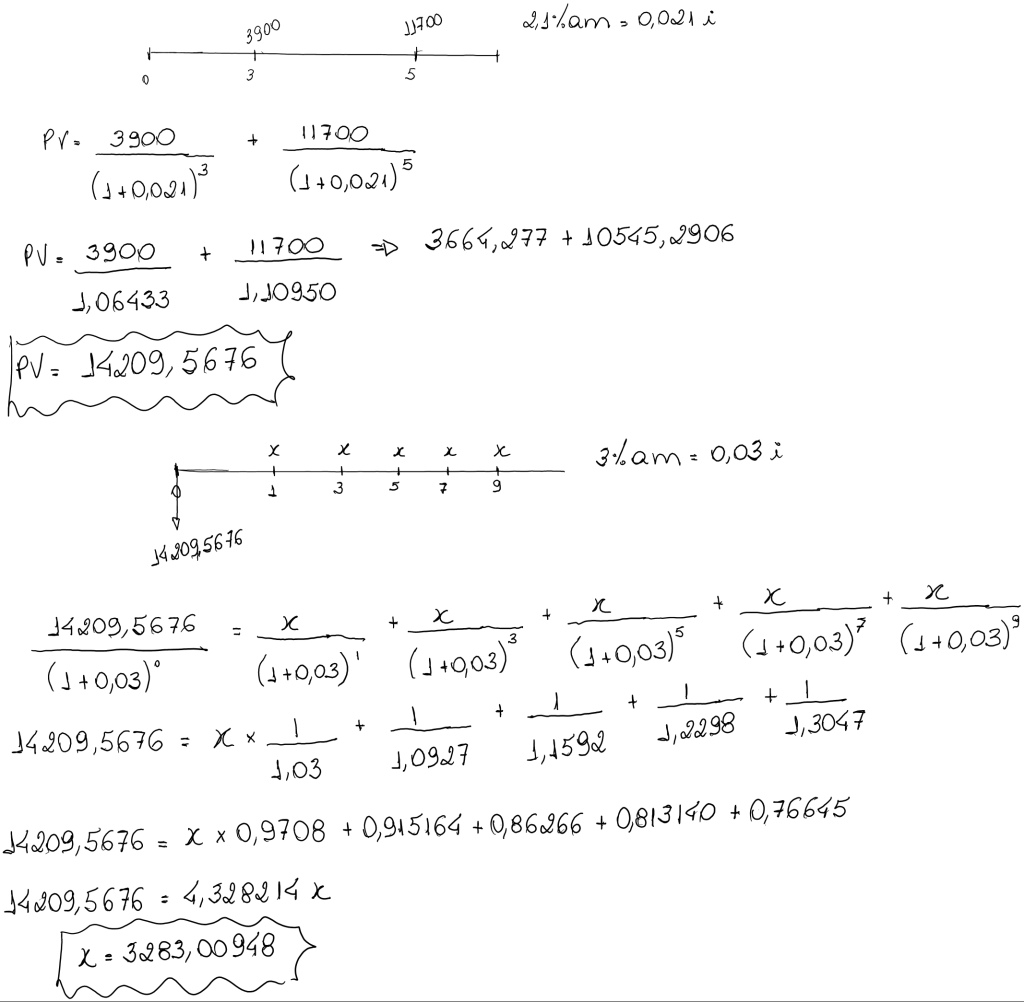 3900 11700 2,1%am = 0,021 i
0 3 5
PV = 3900 / (1+0,021)^3 + 11700 / (1+0,021)^5
PV = 3900 / 1,06433 + 11700 / 1,10950 => 3664,277 + 10545,2906
PV = 14209,5676
x x x x x 3%am = 0,03 i
0 1 3 5 7 9
14209,5676
14209,5676 / (1+0,03)^0 = x / (1+0,03)^1 + x / (1+0,03)^3 + x / (1+0,03)^5 + x / (1+0,03)^7 + x / (1+0,03)^9
14209,5676 = x × 1 / 1,03 + 1 / 1,0927 + 1 / 1,1592 + 1 / 1,2298 + 1 / 1,3047
14209,5676 = x × 0,9708 + 0,915164 + 0,86266 + 0,813140 + 0,76645
14209,5676 = 4,328214 x
x = 3283,00948